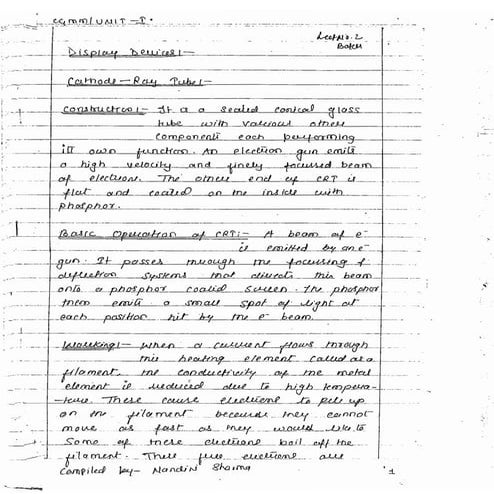 CGMM/UNIT-I.
Lect No. 2
Batch
Display Devices:-
Cathode-Ray Tube:-
Construction:- It a a sealed conical glass
tube with various other
components each performing
its own function. An electron gun emits
a high velocity and finely focussed beam
of electrons. The other end of CRT is
flat and coated on the inside with
phosphor.
Basic Operation of CRT:- A beam of e-
is emitted by an e-
gun. It passes through the focussing &
deflection systems that directs this beam
onto a phosphor coated screen. The phosphor
then emits a small spot of light at
each position hit by the e- beam.
Working:- When a current flows through
this heating element called as a
filament the conductivity of the metal
element is reduced due to high tempera-
ture. These cause electrons to pile up
on the filament because they cannot
move as fast as they would like to
Some of these electrons boil off the
filament. These free electrons are
Compiled by- Nandini Sharma
1